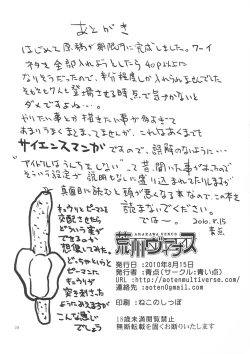 あとがき
はじめて原稿が期限内に完成しました。ワーイ
ネタを全部入れようとしたら40P以上に
なりそうだったので、半分程度しか入れられませんでした
そもそもタんと登場させる時点で気付かないと
ダメですよね…。
やりたい事とか描きたい事が多すぎて
あまりうまくまとまってませんが、これはあくまで
サイエンスマンガ ですので、誤解のないように…
"アイドルはうんちをしない" って昔聞いた事があったので
そういう設定が説明もなしに盛り込まれてたりしますが
真面目に読むと頭が悪くなる本なので、この本を
読まないでください。
では～。 2010.8.15
青点
キュウリとピーマンを
交配させたら
どういう姿が
できるのか
想像してみた。
どっちゃというと
ピーマンに
キュウリが
突き刺さった
ようにみえますが
こんな感じ
でしょう
ARAKAWA JUNCS
荒川ジャンクス
発行日:2010年8月15日
発行者:青点(サークル:青い点)
URL :http://aotenmultiverse.com/
連絡先 :aoten@gmail.com
印刷 :ねこのしっぽ
18歳未満閲覧禁止
無断転載を固くお断りいたします